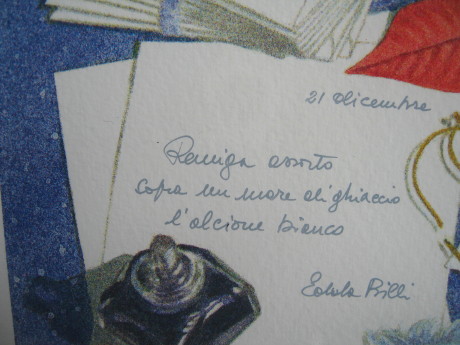 21 dicembre
Remiga assorto
sopra un mare di ghiaccio
l'alcione bianco
Edda Billi